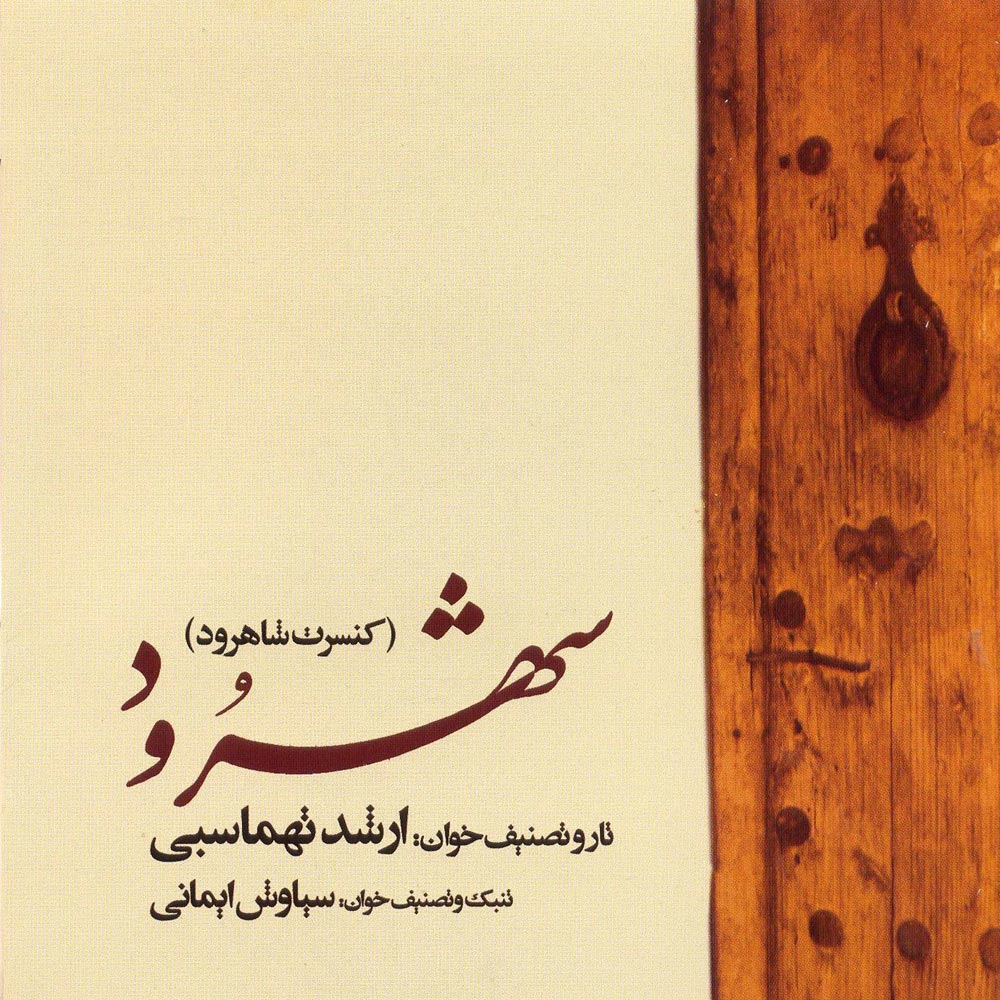 (کنسرت شاهرود)
شهرُود
تار و تصنیف خوان: ارشد تهماسبی
تنبک و تصنیف خوان: سیاوش ایمانی